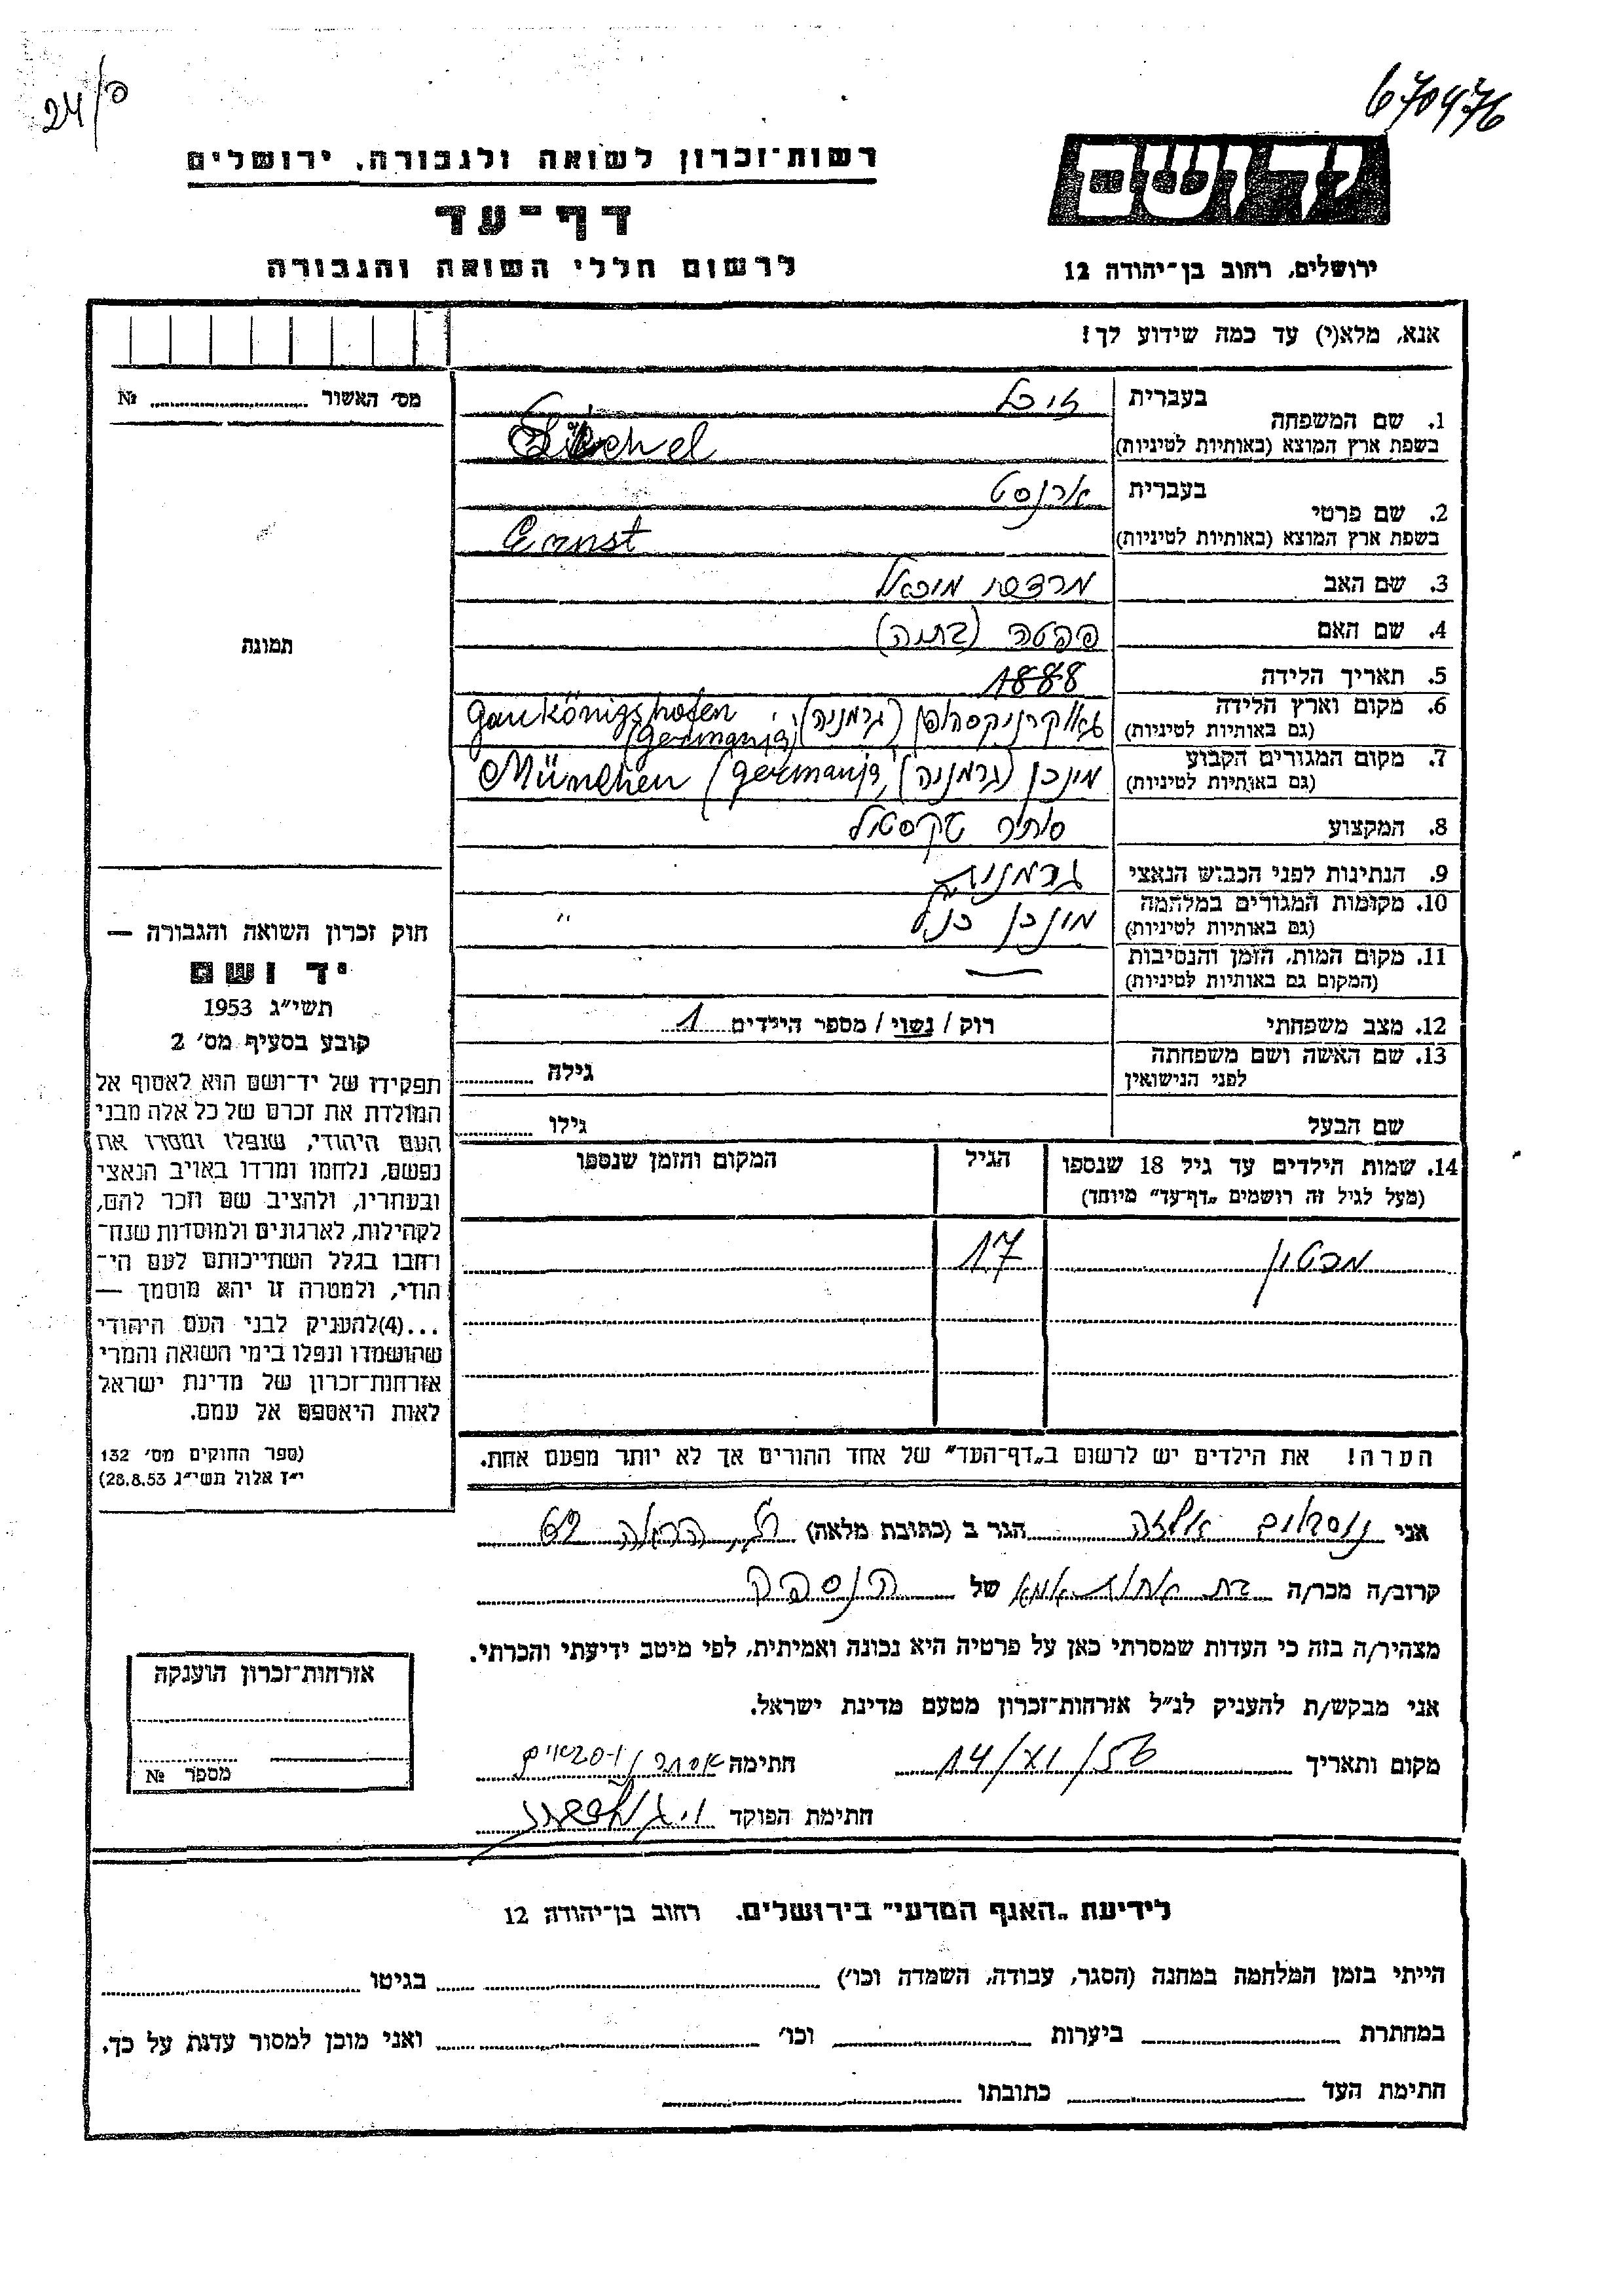 24/0
670476
יד ושם
רשות־זכרון לשואה ולגבורה, ירושלים
דף־עד
לרשום חללי השואה והגבורה
ירושלים, רחוב בן־יהודה 12
אנא, מלא(י) עד כמה שידוע לך!
מס׳ האשור № 
1. שם המשפחה
בעברית זיכל
בשפת ארץ המוצא (באותיות לטיניות)
2. שם פרטי
בעברית ארנסט
בשפת ארץ המוצא (באותיות לטיניות) Ernst
3. שם האב מיכאל
4. שם האם
5. תאריך הלידה 1888
6. מקום וארץ הלידה (גרמניה) Gaukönigshofen
(גם באותיות לטיניות) (Germania)
7. מקום המגורים הקבוע
(גם באותיות לטיניות) מינכן (גרמניה) München (Germania)
8. המקצוע סוחר טקסטיל
9. הנתינות לפני הכבוש הנאצי גרמנית
10. מקומות המגורים במלחמה
(גם באותיות לטיניות) מינכן כנ״ל "
11. מקום המות, הזמן והנסיבות
(המקום גם באותיות לטיניות) —
12. מצב משפחתי רוק / נשוי / מספר הילדים 1
13. שם האשה ושם משפחתה
לפני הנישואין גילה
שם הבעל גילו
14. שמות הילדים עד גיל 18 שנספו
(מעל לגיל זה רושמים „דף־עד״ מיוחד)
הגיל
המקום והזמן שנספו
17
הערה! את הילדים יש לרשום ב„דף־העד״ של אחד ההורים אך לא יותר מפעם אחת.
תמונה
חוק זכרון השואה והגבורה —
יד ושם
תשי״ג 1953
קובע בסעיף מס׳ 2
תפקידו של יד־ושם הוא לאסוף אל
המולדת את זכרם של כל אלה מבני
העם היהודי, שנפלו ומסרו את
נפשם, נלחמו ומרדו באויב הנאצי
ובעוזריו, ולהציב שם וזכר להם,
לקהילות, לארגונים ולמוסדות שנח־
רחבו בגלל השתייכותם לעם הי־
הודי, ולמטרה זו יהא מוסמך —
...(4)להעניק לבני העם היהודי
שהושמדו ונפלו בימי השואה והמרי
אזרחות־זכרון של מדינת ישראל
לאות היאספם אל עמם.
(ספר החוקים מס׳ 132
י״ז אלול תשי״ג 28.8.53)
אני נוסבאום הגר ב (כתובת מלאה) 62
קרוב/ה מכר/ה בת אחות אמא של הנספה
מצהיר/ה בזה כי העדות שמסרתי כאן על פרטיה היא נכונה ואמיתית, לפי מיטב ידיעתי והכרתי.
אני מבקש/ת להעניק לנ״ל אזרחות־זכרון מטעם מדינת ישראל.
מקום ותאריך 14/XI/56 חתימה
חתימת הפוקד
אזרחות־זכרון הוענקה
מספר №
לידיעת „האגף המדעי״ בירושלים. רחוב בן־יהודה 12
הייתי בזמן המלחמה במחנה (הסגר, עבודה, השמדה וכו׳) בגיטו
במחתרת ביערות וכו׳ ואני מוכן למסור עדות על כך.
חתימת העד כתובתו